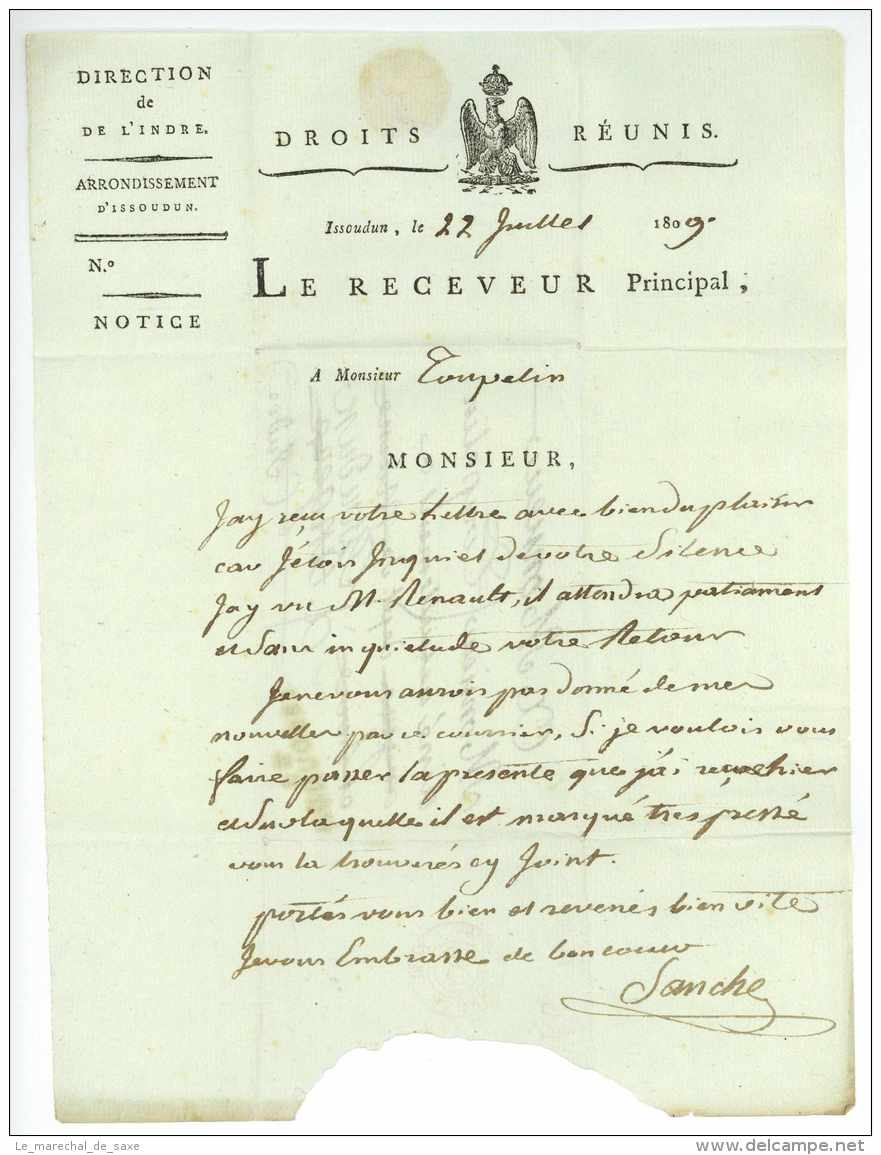 DIRECTION
de
DE L'INDRE.
ARRONDISSEMENT
D'ISSOUDUN.
N.o
NOTICE
DROITS RÉUNIS.
Issoudun, le 22 Juillet 1809.
LE RECEVEUR Principal,
A Monsieur Toupelin
MONSIEUR,
Jay reçu votre Lettre avec bien du plaisir
car Jétois Inquiet de votre Silence
Jay vu M. Renault, il attendra patiament
et sans inquietude votre Retour
Je ne vous aurois pas donné de mes
nouvelles par ce courrier, Si je voulois vous
faire passer la presente que j'ai reçue hier
et Sur laquelle il est marqué tres pressé
vous la trouverés cy Joint.
portés vous bien et revenés bien vite
Je vous Embrasse de bon coeur
Sanche
Le_marechal_de_saxe
delcampe.net